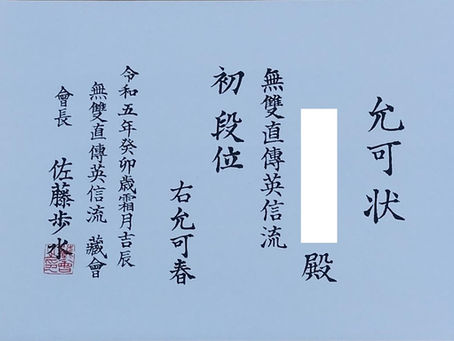 允可状
殿
無雙直傳英信流
初段位
右允可春
令和五年癸卯歳霜月吉辰
無雙直傳英信流 藏會
會長 佐藤歩水